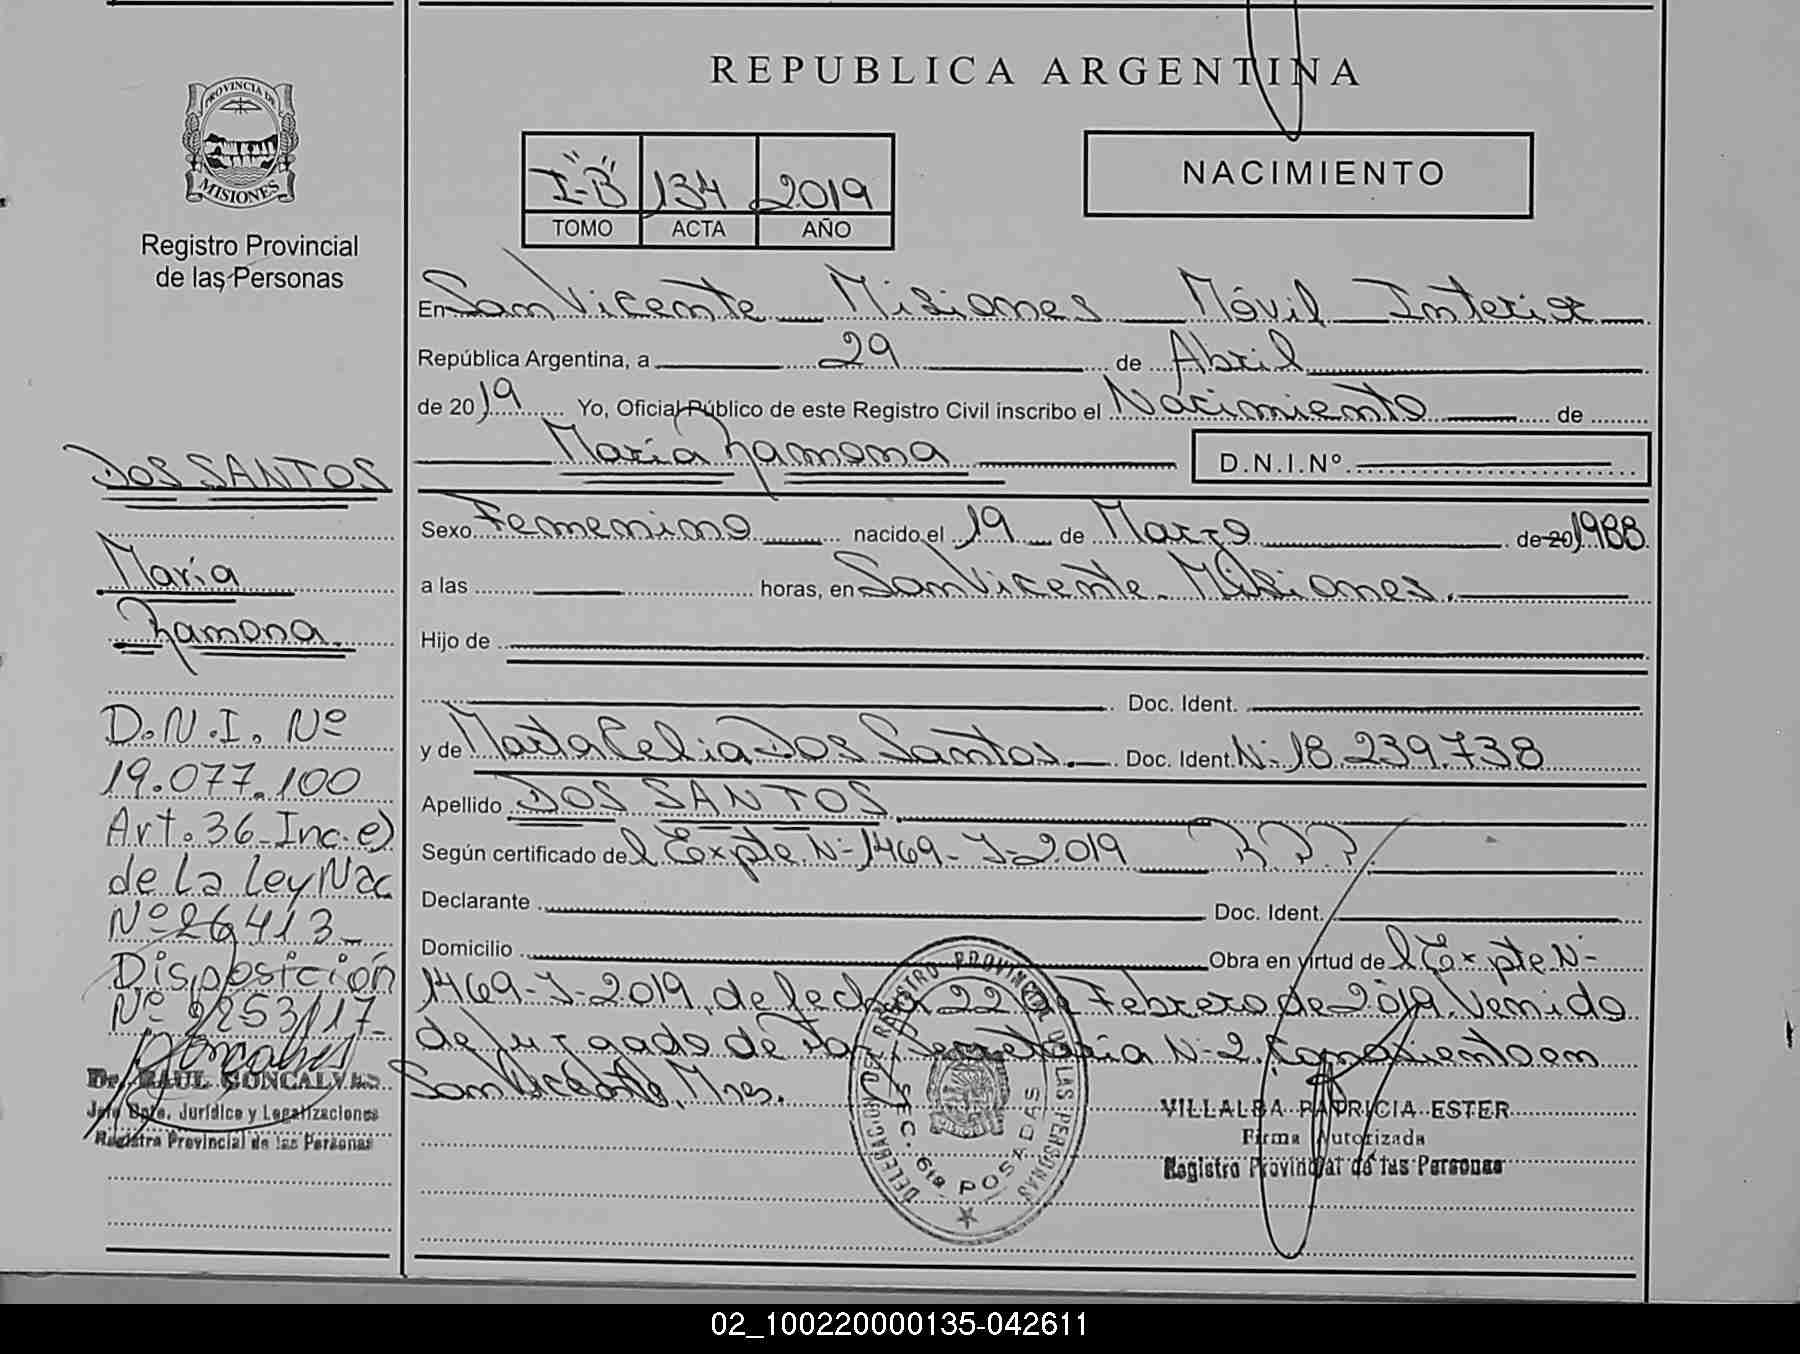 REPUBLICA ARGENTINA
PROVINCIA DE
MISIONES
Registro Provincial
de las Personas
I-B 134 2019
TOMO ACTA AÑO
NACIMIENTO
En San Vicente Misiones Móvil Interior
República Argentina, a 29 de Abril
de 2019 Yo, Oficial Público de este Registro Civil inscribo el Nacimiento de
María Ramona D.N.I.Nº
Sexo Femenino nacido el 19 de Marzo de 20 1988
a las horas, en San Vicente Misiones.
Hijo de
Doc. Ident.
y de Marta Celia Dos Santos Doc. Ident. Nº 18.239.738
Apellido DOS SANTOS
Según certificado del Expte Nº 1469-J-2019 R.P.P.
Declarante Doc. Ident.
Domicilio Obra en virtud del Expte Nº
1469-J-2019, de fecha 22 Febrero de 2019. Venido
de Juzgado de Paz Secretaria Nº 2. Con asiento en
San Vicente, Mnes.
VILLALBA PATRICIA ESTER
Firma Autorizada
Registro Provincial de las Personas
DELEGACION DEL REGISTRO PROVINCIAL DE LAS PERSONAS
SEC. 618 POSADAS
DOS SANTOS
María
Ramona.
D.N.I. Nº
19.077.100
Art. 36 Inc. e)
de La Ley Nac
Nº 26413
Disposición
Nº 2253/17
Dr. RAUL GONCALVES
Jefe Dpto. Jurídico y Legalizaciones
Registro Provincial de las Personas
02_100220000135-042611